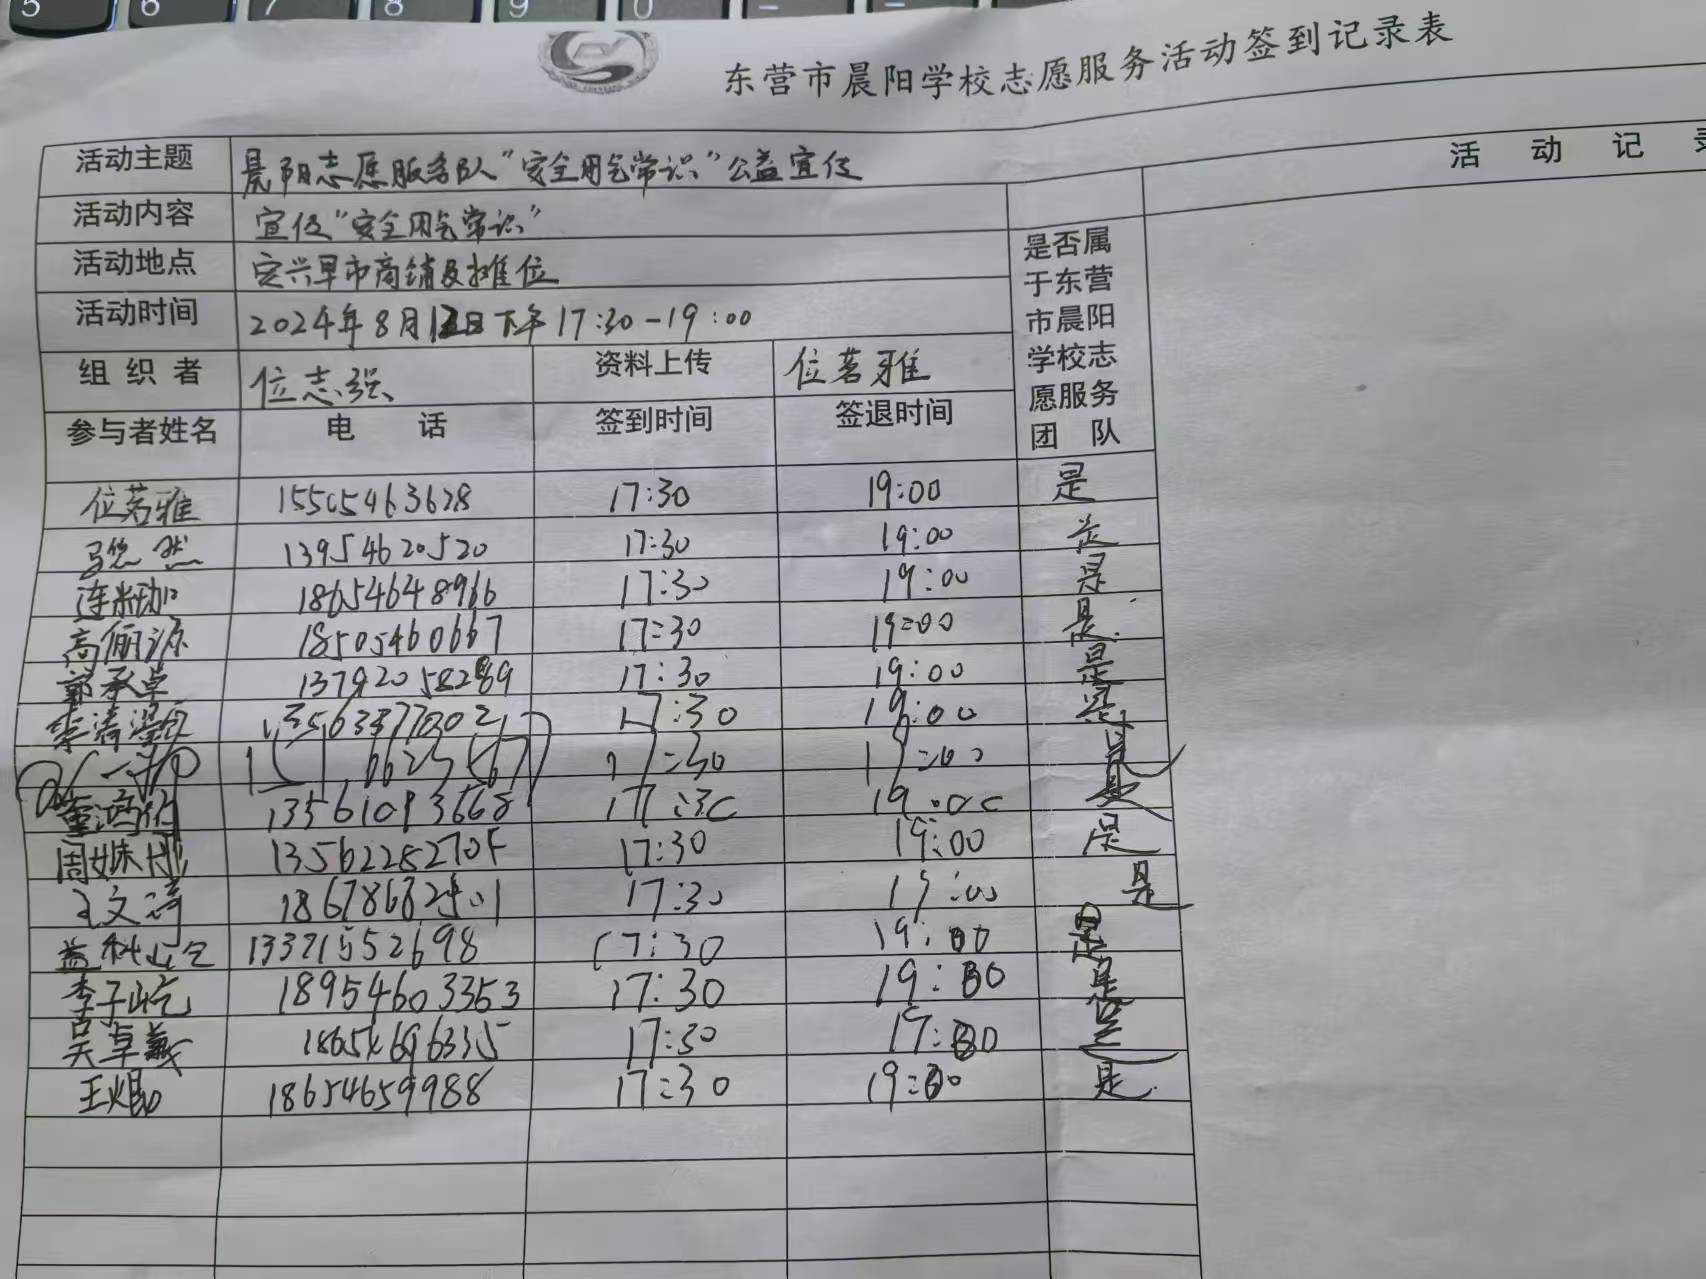 5 6 7 8 9 0
东营市晨阳学校志愿服务活动签到记录表
活动主题 晨阳志愿服务队“安全用气常识”公益宣传
活动记录
活动内容 宣传“安全用气常识”
活动地点 定兴早市商铺及摊位
活动时间 2024年8月12日下午17:30-19:00
是否属于东营市晨阳学校志愿服务团队
组织者 位志强 资料上传 位茗雅
参与者姓名 电话 签到时间 签退时间
位茗雅 15505463628 17:30 19:00 是
马悠然 13954620520 17:30 19:00 是
连米珈 18654648966 17:30 19:00 是
高俪源 18505460667 17:30 19:00 是
郭承卓 13792058289 17:30 19:00 是
李清 13563377002 17:30 19:00 是
17:30 19:00 是
董鸿 13561093668 17:30 19:00 是
周姝彤 13562252705 17:30 19:00 是
王文涛 17:30 19:00 是
13371552698 17:30 19:00 是
李子屹 18954603353 17:30 19:00 是
吴卓羲 18654696335 17:30 19:00 是
王焜 18654659988 17:30 19:00 是